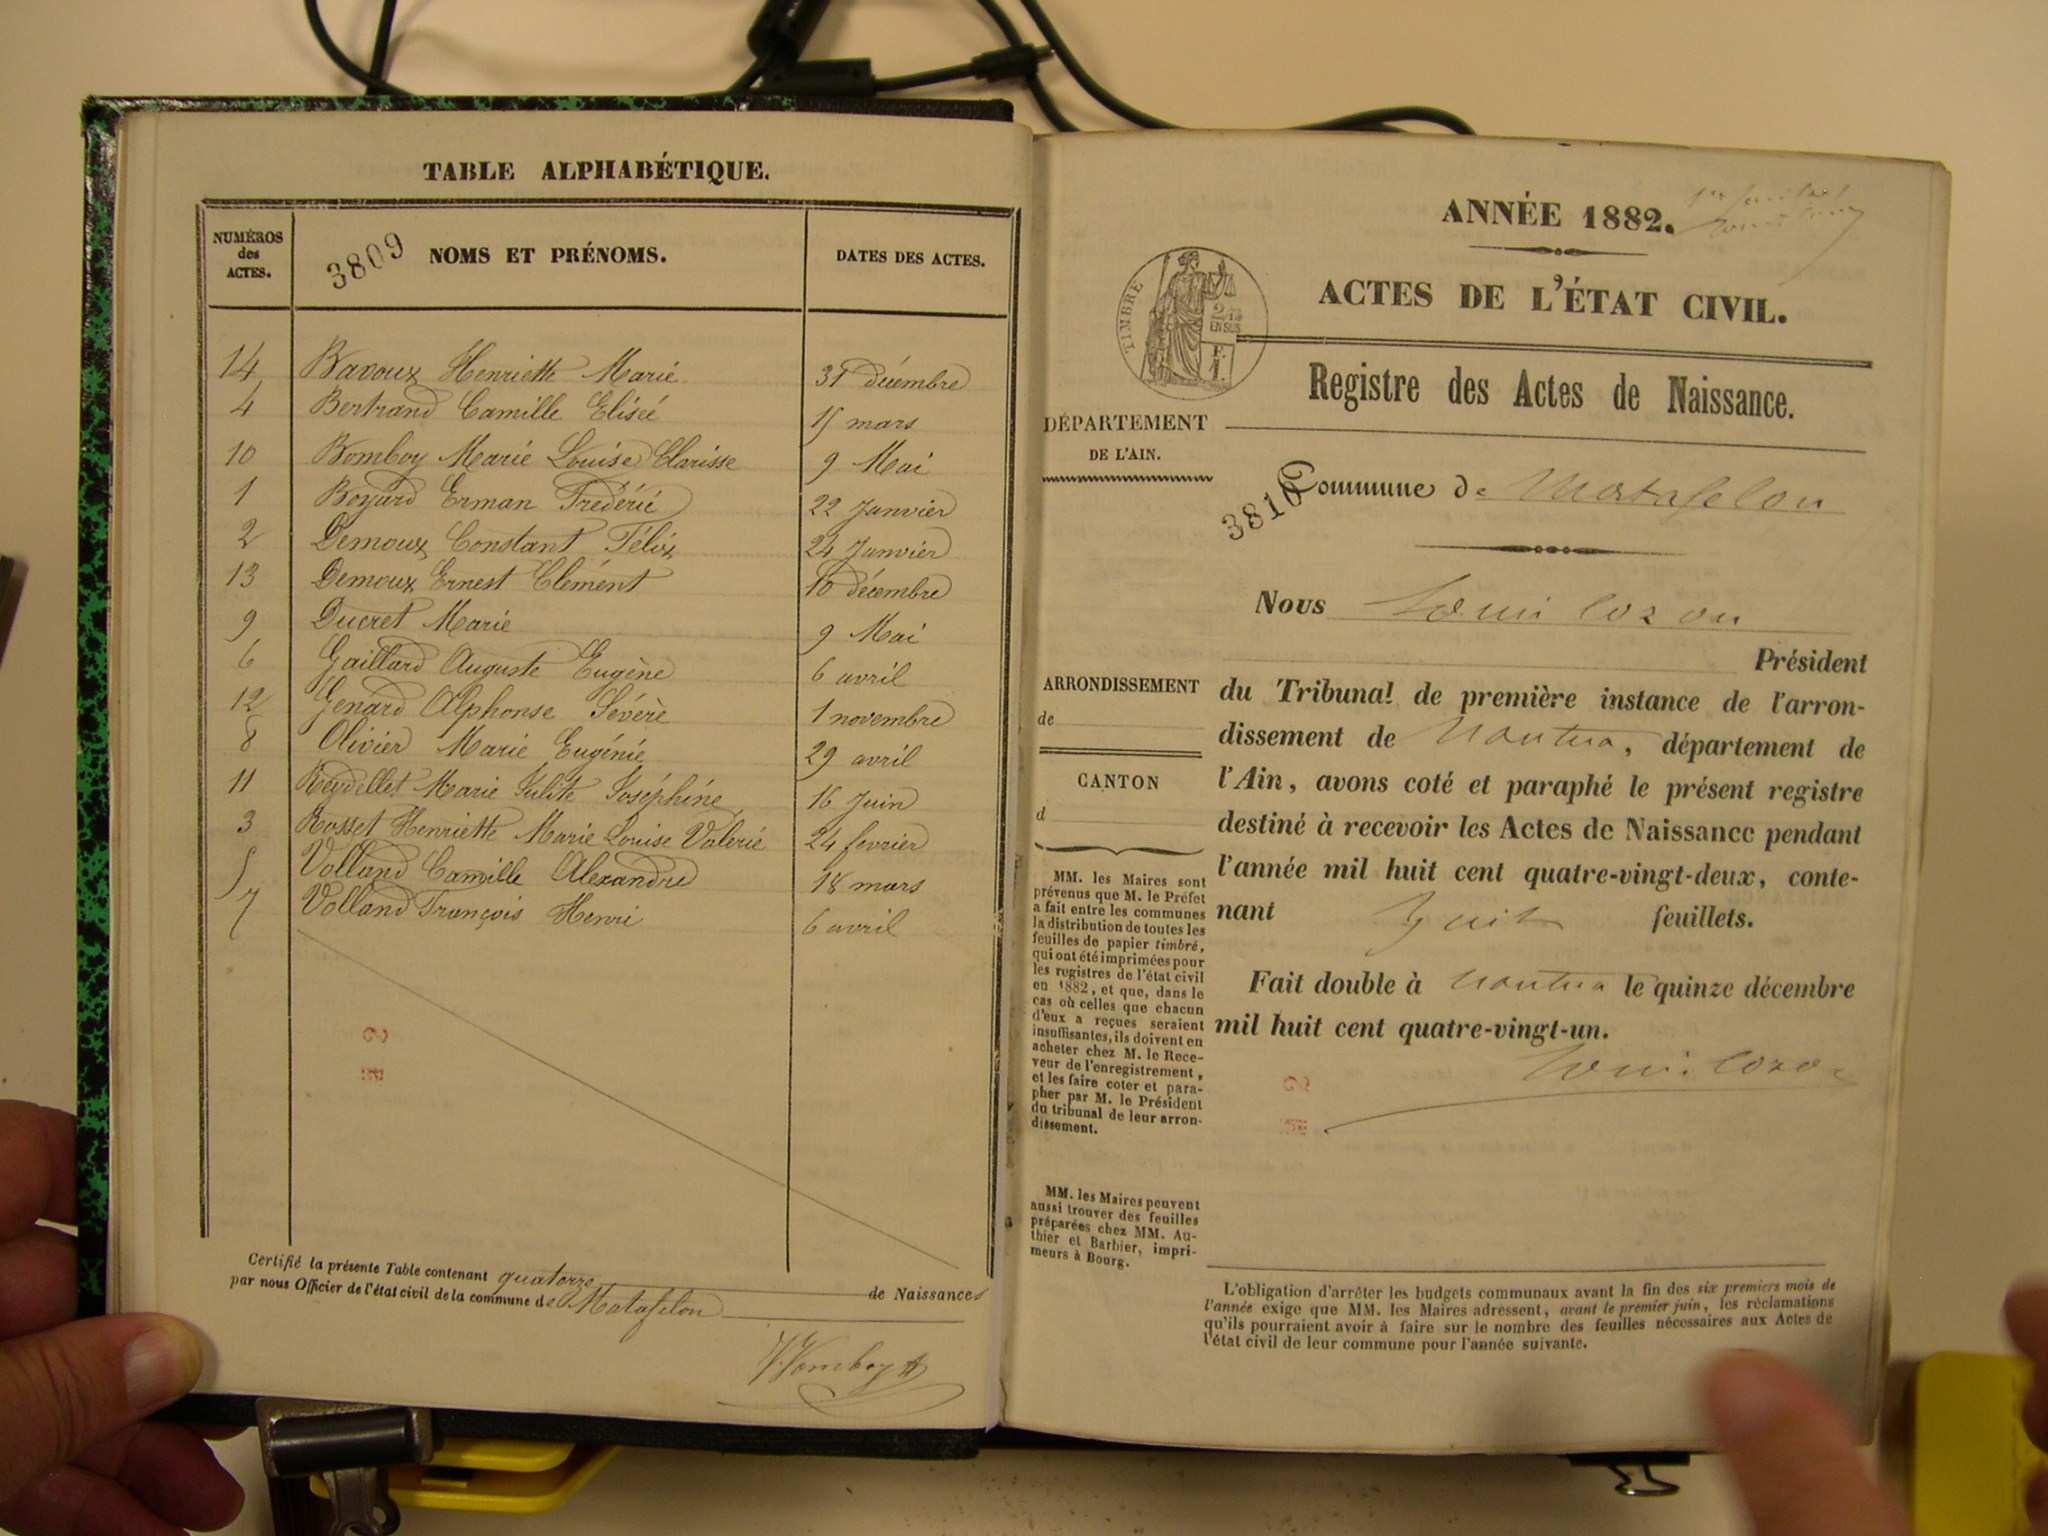 TABLE ALPHABÉTIQUE.
NUMÉROS
des
ACTES.
3809
NOMS ET PRÉNOMS.
DATES DES ACTES.
14 Bavoux Henriette Marie 31 décembre
4 Bertrand Camille Elisée 15 mars
10 Bomboy Marie Louise Clarisse 9 Mai
1 Boyard Erman Frédéric 22 Janvier
2 Demoux Constant Félix 24 Janvier
13 Demoux Ernest Clément 10 décembre
9 Ducret Marie 9 Mai
6 Gaillard Auguste Eugène 6 avril
12 Genard Alphonse Sévère 1 novembre
8 Olivier Marie Eugénie 29 avril
11 Reydellet Marie Julite Joséphine 16 Juin
3 Rosset Henriette Marie Louise Valerie 24 fevrier
5 Volland Camille Alexandre 18 mars
7 Volland François Henri 6 avril
Certifié la présente Table contenant quatorze de Naissances
par nous Officier de l'état civil de la commune de Matafelon
ANNÉE 1882.
ACTES DE L'ÉTAT CIVIL.
TIMBRE
2/10
EN SUS
F.
1.
Registre des Actes de Naissance.
DÉPARTEMENT
DE L'AIN.
Commune de Matafelon
3810
Nous Louis Cozon
Président
du Tribunal de première instance de l'arron-
dissement de Nantua, département de
l'Ain, avons coté et paraphé le présent registre
destiné à recevoir les Actes de Naissance pendant
l'année mil huit cent quatre-vingt-deux, conte-
nant huit feuillets.
Fait double à Nantua le quinze décembre
mil huit cent quatre-vingt-un.
Louis Cozon
ARRONDISSEMENT
de
CANTON
d
MM. les Maires sont
prévenus que M. le Préfet
a fait entre les communes
la distribution de toutes les
feuilles de papier timbré,
qui ont été imprimées pour
les registres de l'état civil
en 1882, et que, dans le
cas où celles que chacun
d'eux a reçues seraient
insuffisantes, ils doivent en
acheter chez M. le Rece-
veur de l'enregistrement,
et les faire coter et para-
pher par M. le Président
du tribunal de leur arron-
dissement.
MM. les Maires peuvent
aussi trouver des feuilles
préparées chez MM. Au-
thier et Barbier, impri-
meurs à Bourg.
L'obligation d'arrêter les budgets communaux avant la fin des six premiers mois de
l'année exige que MM. les Maires adressent, avant le premier juin, les réclamations
qu'ils pourraient avoir à faire sur le nombre des feuilles nécessaires aux Actes de
l'état civil de leur commune pour l'année suivante.